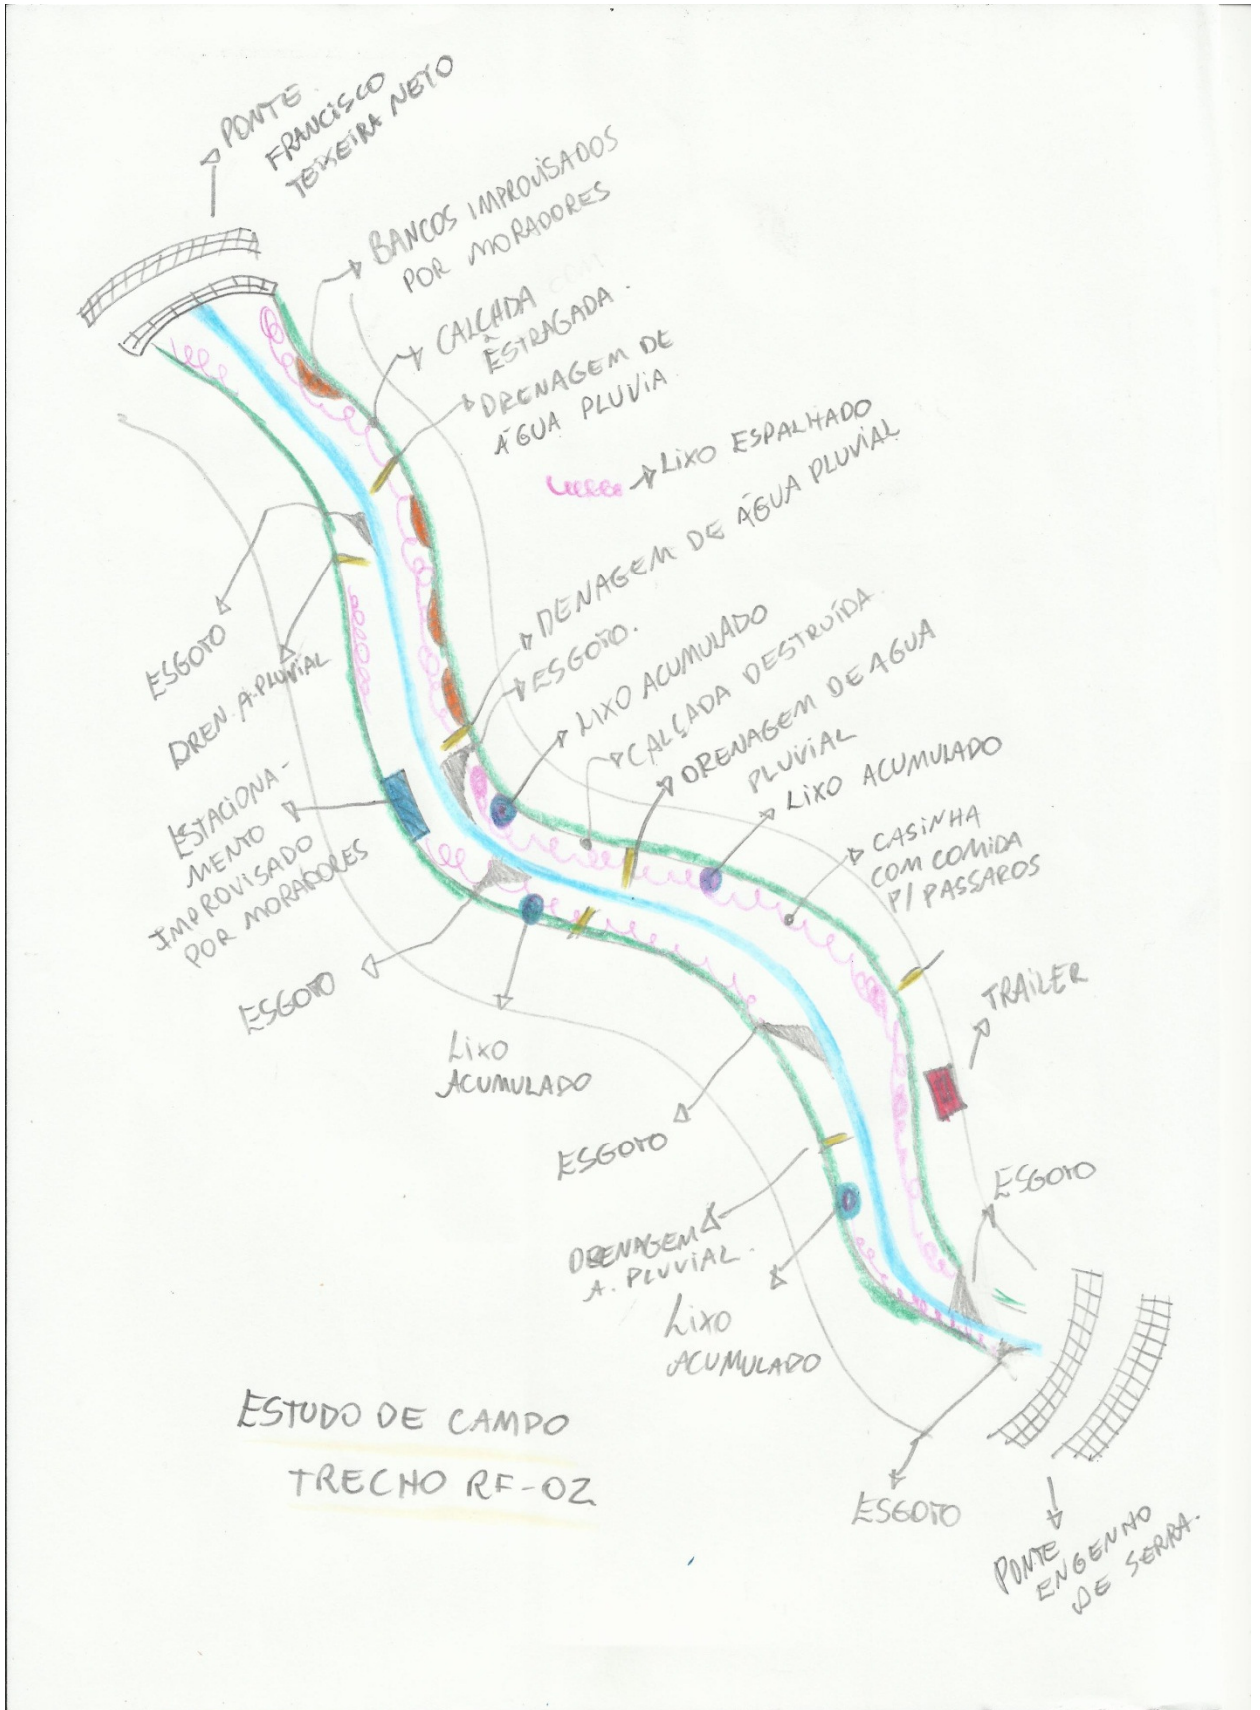 PONTE
FRANCISCO
TEIXEIRA NETO
BANCOS IMPROVISADOS
POR MORADORES
CALÇADA
ESTRAGADA.
DRENAGEM DE
ÁGUA PLUVIA
LIXO ESPALHADO
DENAGEM DE ÁGUA PLUVIAL
ESGOTO.
LIXO ACUMULADO
CALÇADA DESTRUÍDA.
DRENAGEM DE AGUA
PLUVIAL
LIXO ACUMULADO
CASINHA
COM COMIDA
P/ PASSAROS
TRAILER
ESGOTO
ESGOTO
DREN. A. PLUVIAL
ESTACIONA-
MENTO
IMPROVISADO
POR MORADORES
ESGOTO
LIXO
ACUMULADO
ESGOTO
DRENAGEM
A. PLUVIAL.
LIXO
ACUMULADO
ESGOTO
PONTE
ENGENHO
DE SERRA.
ESTUDO DE CAMPO
TRECHO RF-02